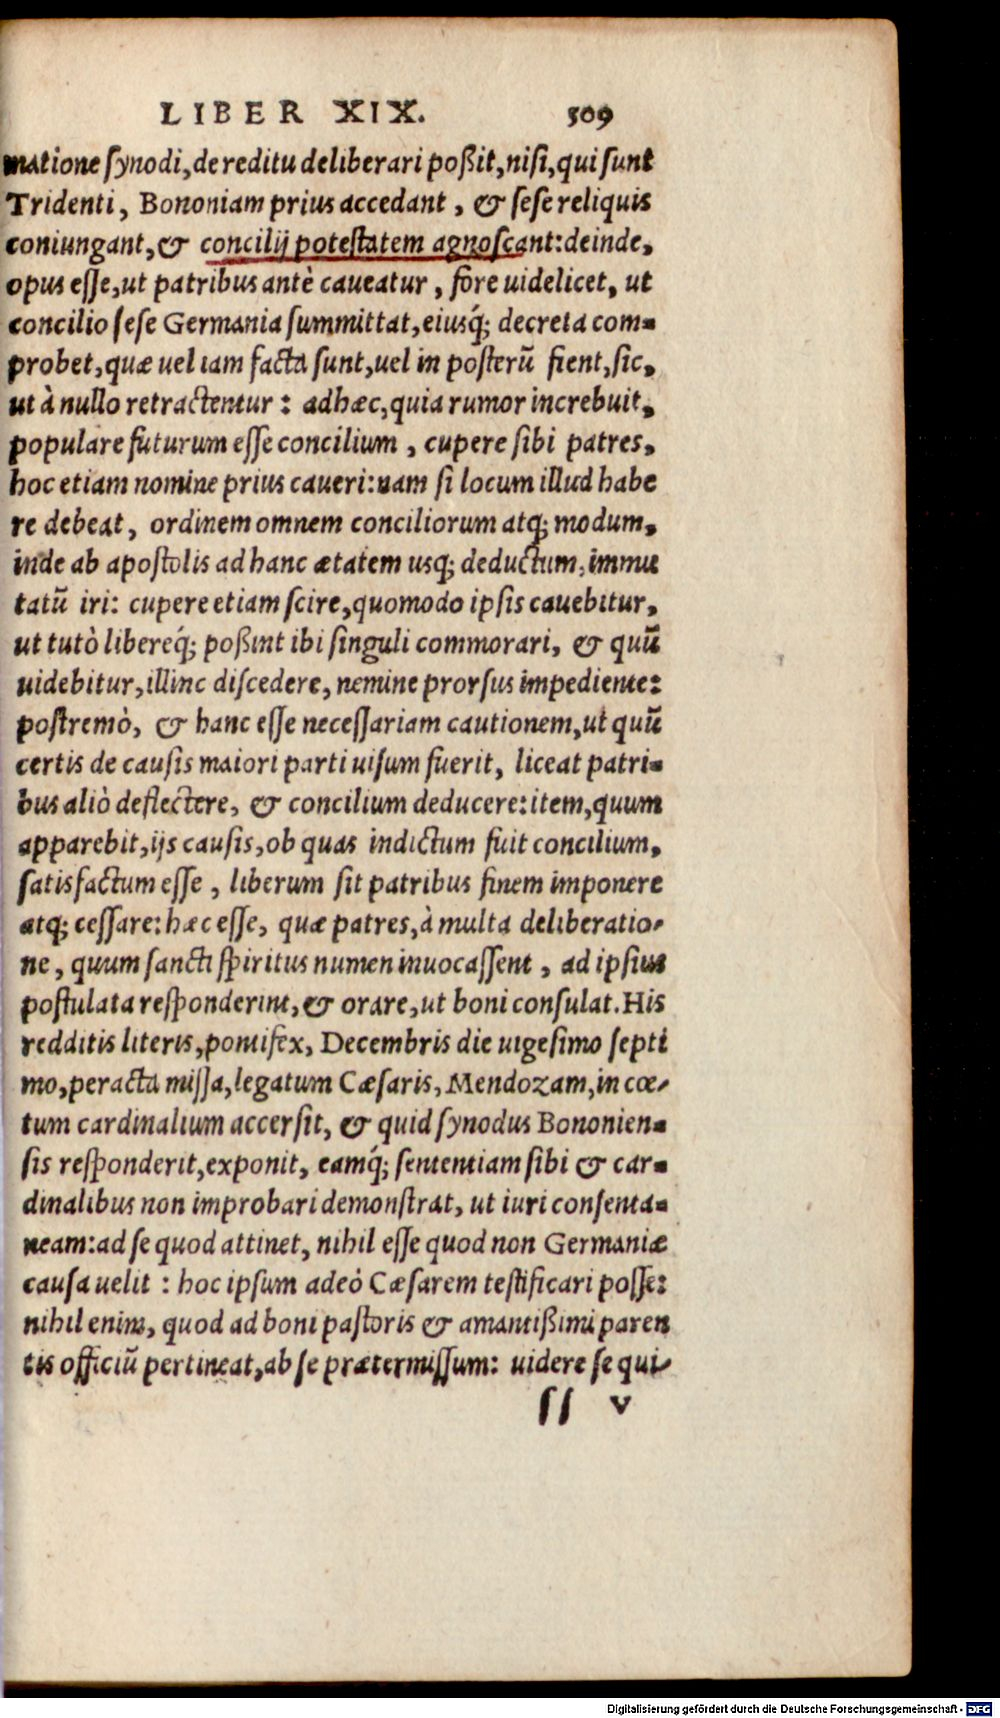 LIBER XIX. 509
matione synodi, de reditu deliberari poßit, nisi, qui sunt
Tridenti, Bononiam prius accedant, & sese reliquis
coniungant, & concilij potestatem agnoscant: deinde,
opus esse, ut patribus antè caveatur, fore uidelicet, ut
concilio sese Germania summittat, eiusq́; decreta com-
probet, quæ uel iam facta sunt, uel in posterũ fient, sic,
ut à nullo retractentur: adhæc, quia rumor increbuit,
populare futurum esse concilium, cupere sibi patres,
hoc etiam nomine prius caveri: nam si locum illud habe
re debeat, ordinem omnem conciliorum atq; modum,
inde ab apostolis ad hanc ætatem usq; deductum, immu
tatũ iri: cupere etiam scire, quomodo ipsis cavebitur,
ut tutò libereq́; poßint ibi singuli commorari, & quũ
uidebitur, illinc discedere, nemine prorsus impediente:
postremò, & hanc esse necessariam cautionem, ut quũ
certis de causis maiori parti uisum fuerit, liceat patri-
bus aliò deflectere, & concilium deducere: item, quum
apparebit, ijs causis, ob quas indictum fuit concilium,
satisfactum esse, liberum sit patribus finem imponere
atq; cessare: hæc esse, quæ patres, à multa deliberatio-
ne, quum sancti spiritus numen inuocassent, ad ipsius
postulata responderint, & orare, ut boni consulat. His
redditis literis, pontifex, Decembris die uigesimo septi
mo, peracta missa, legatum Cæsaris, Mendozam, in cœ-
tum cardinalium accersit, & quid synodus Bononien-
sis responderit, exponit, eamq́; sententiam sibi & car-
dinalibus non improbari demonstrat, ut iuri consenta-
neam: ad se quod attinet, nihil esse quod non Germaniæ
causa uelit: hoc ipsum adeò Cæsarem testificari posse:
nihil enim, quod ad boni pastoris & amantißimi paren
tis officiũ pertineat, ab se prætermissum: uidere se qui-
ss v
Digitalisierung gefördert durch die Deutsche Forschungsgemeinschaft - DFG